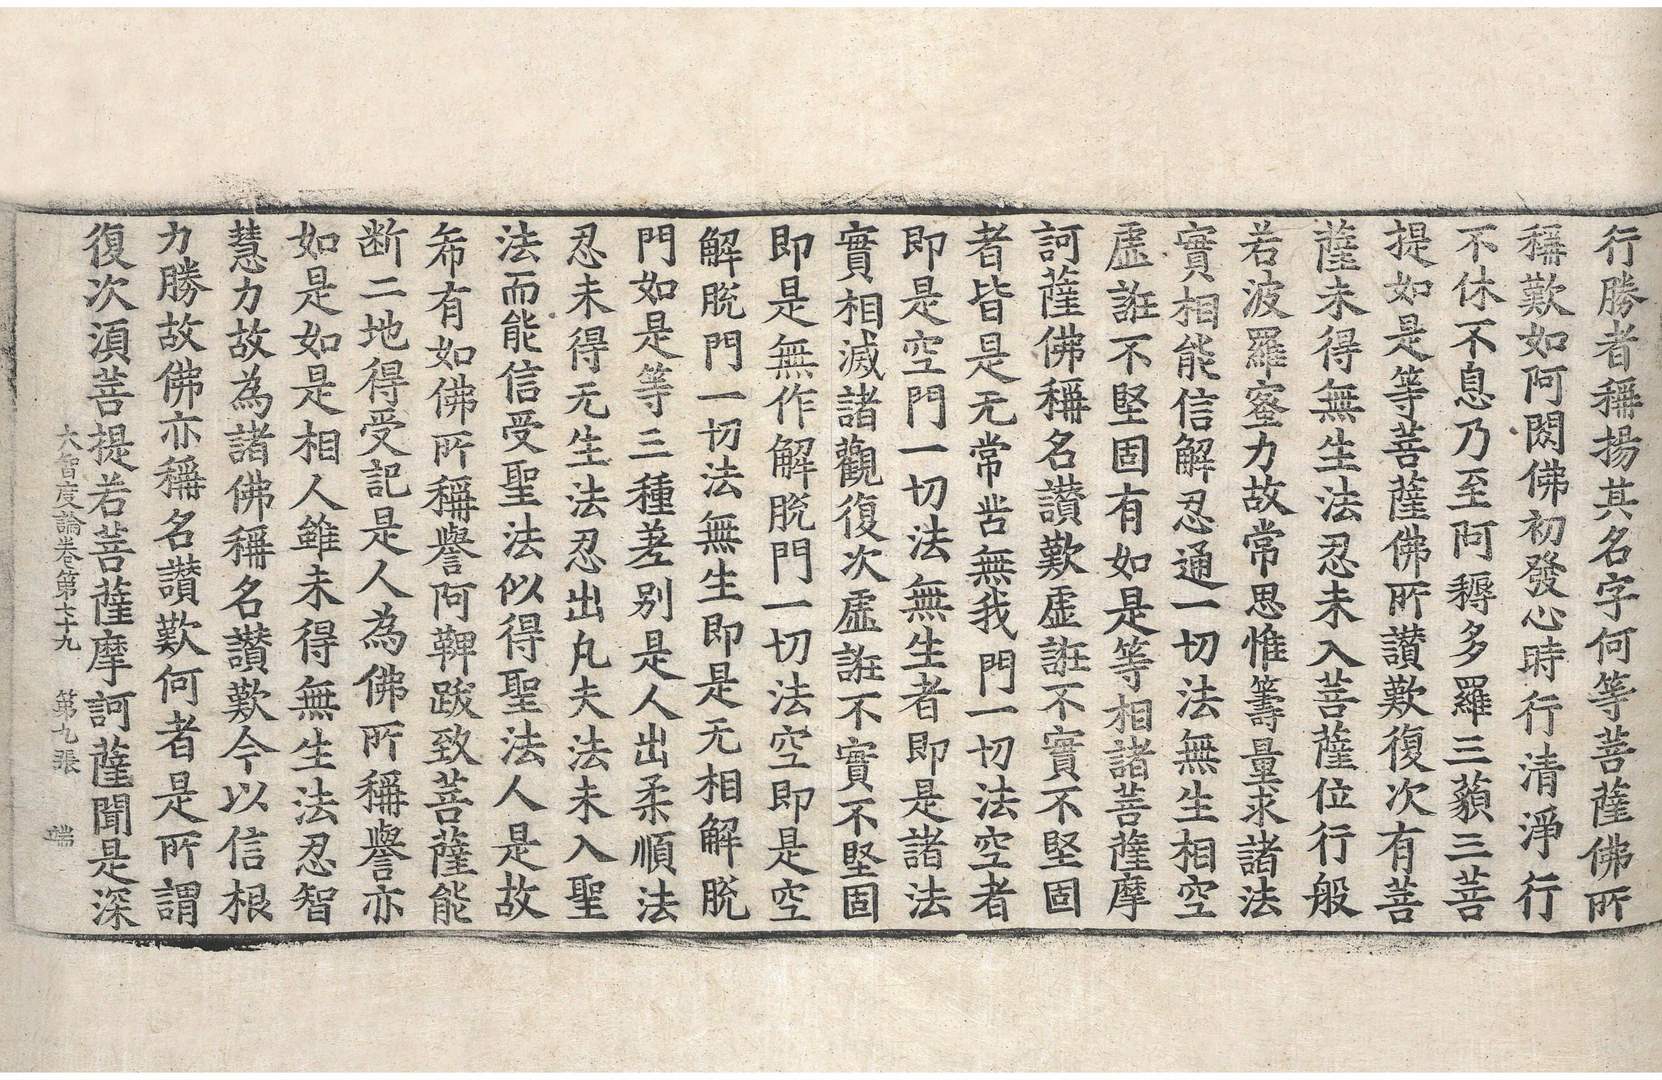 行勝者稱揚其名字何等菩薩佛所
稱歎如阿閦佛初發心時行清淨行
不休不息乃至阿耨多羅三藐三菩
提如是等菩薩佛所讚歎復次有菩
薩未得無生法忍未入菩薩位行般
若波羅蜜力故常思惟籌量求諸法
實相能信解忍通一切法無生相空
虛誑不堅固有如是等相諸菩薩摩
訶薩佛稱名讚歎虛誑不實不堅固
者皆是无常苦無我門一切法空者
即是空門一切法無生者即是諸法
實相滅諸觀復次虛誑不實不堅固
即是無作解脫門一切法空即是空
解脫門一切法無生即是无相解脫
門如是等三種差別是人出柔順法
忍未得无生法忍出凡夫法未入聖
法而能信受聖法似得聖法人是故
希有如佛所稱譽阿鞞跋致菩薩能
断二地得受記是人為佛所稱譽亦
如是如是相人雖未得無生法忍智
慧力故為諸佛稱名讚歎今以信根
力勝故佛亦稱名讚歎何者是所謂
復次湏菩提若菩薩摩訶薩聞是深
大智度論卷第七十九 第九張 端